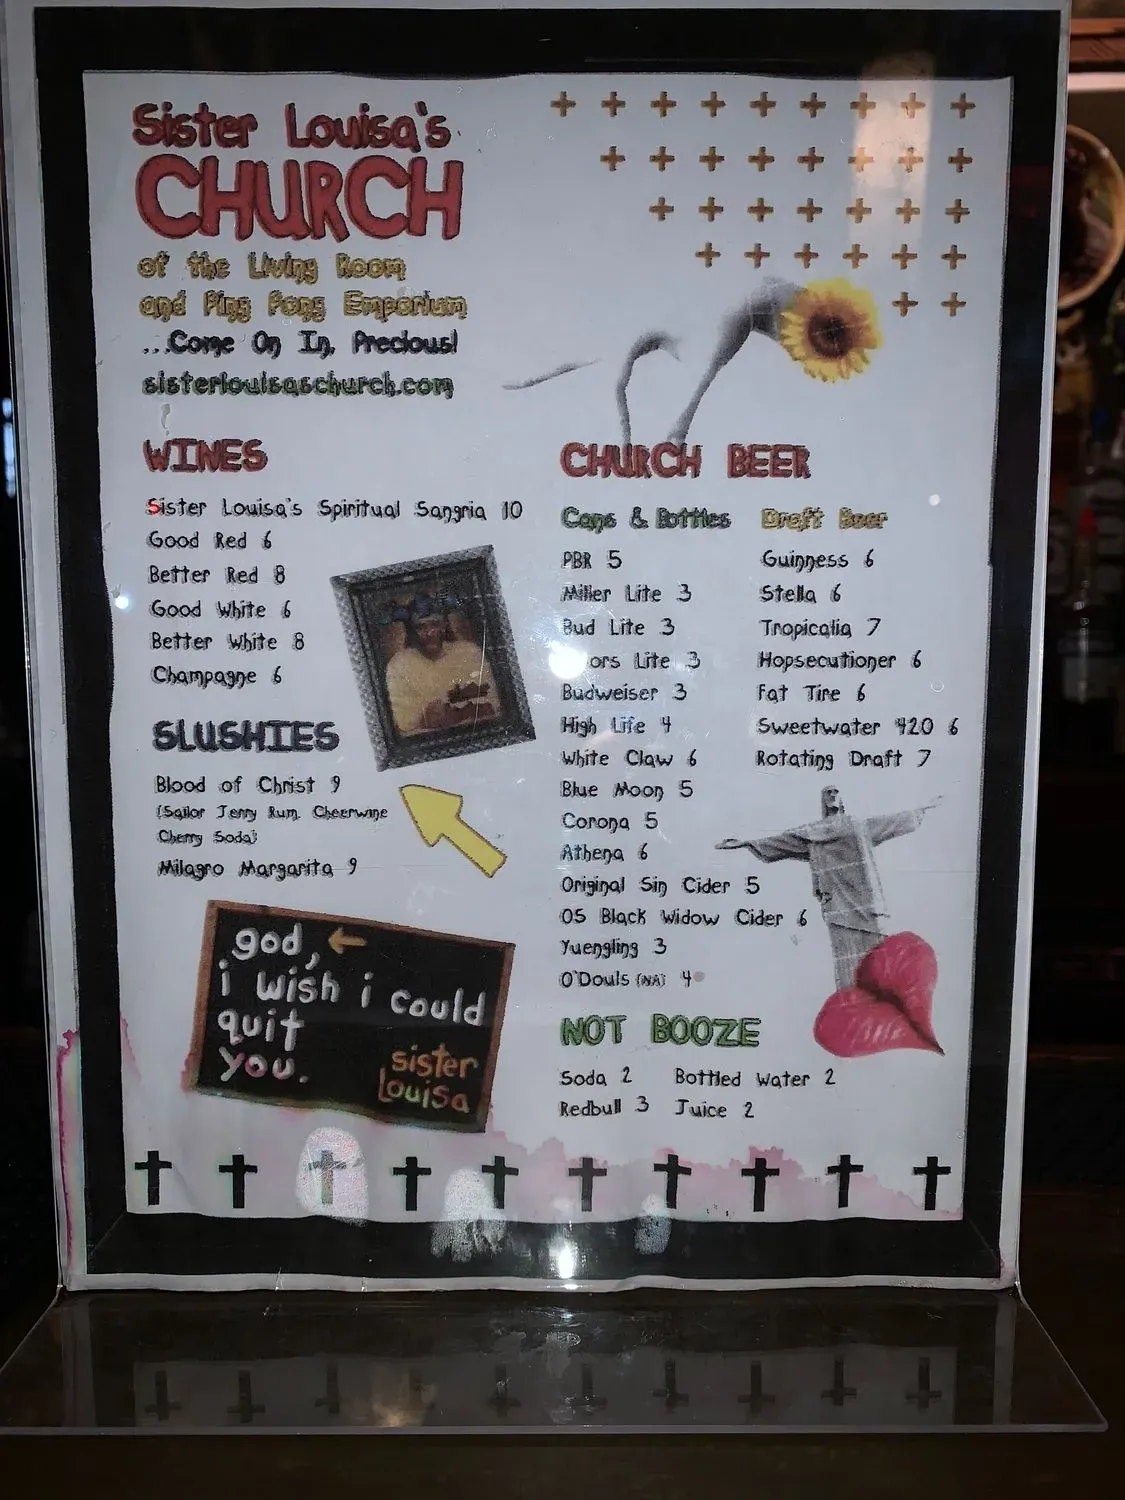 Sister Louisa's
CHURCH
of the Living Room
and Ping Pong Emporium
...Come On In, Precious!
sisterlouisaschurch.com
WINES
Sister Louisa's Spiritual Sangria 10
Good Red 6
Better Red 8
Good White 6
Better White 8
Champagne 6
SLUSHIES
Blood of Christ 9
(Sailor Jerry Rum, Cheerwine
Cherry Soda)
Milagro Margarita 9
god,
i wish i could
quit
you.
sister
Louisa
CHURCH BEER
Cans & Bottles
PBR 5
Miller Lite 3
Bud Lite 3
ors Lite 3
Budweiser 3
High Life 4
White Claw 6
Blue Moon 5
Corona 5
Athena 6
Original Sin Cider 5
OS Black Widow Cider 6
Yuengling 3
O'Douls (NA) 4
Draft Beer
Guinness 6
Stella 6
Tropicalia 7
Hopsecutioner 6
Fat Tire 6
Sweetwater 420 6
Rotating Draft 7
NOT BOOZE
Soda 2 Bottled Water 2
Redbull 3 Juice 2